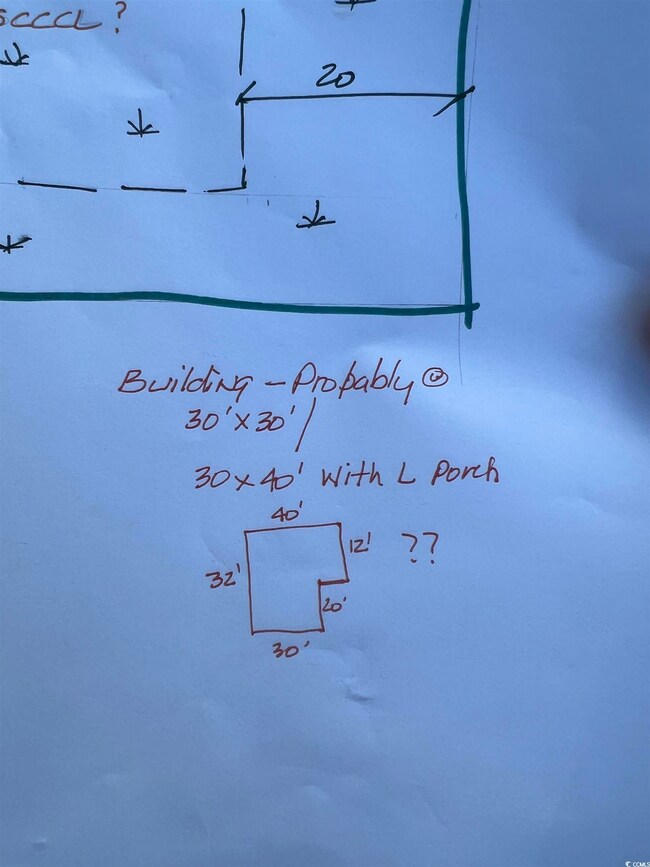 SCCCL?
20
Building - Propably
30'x30' /
30x40' with L Porch
40'
12' ??
32'
20'
30'
CCMLS